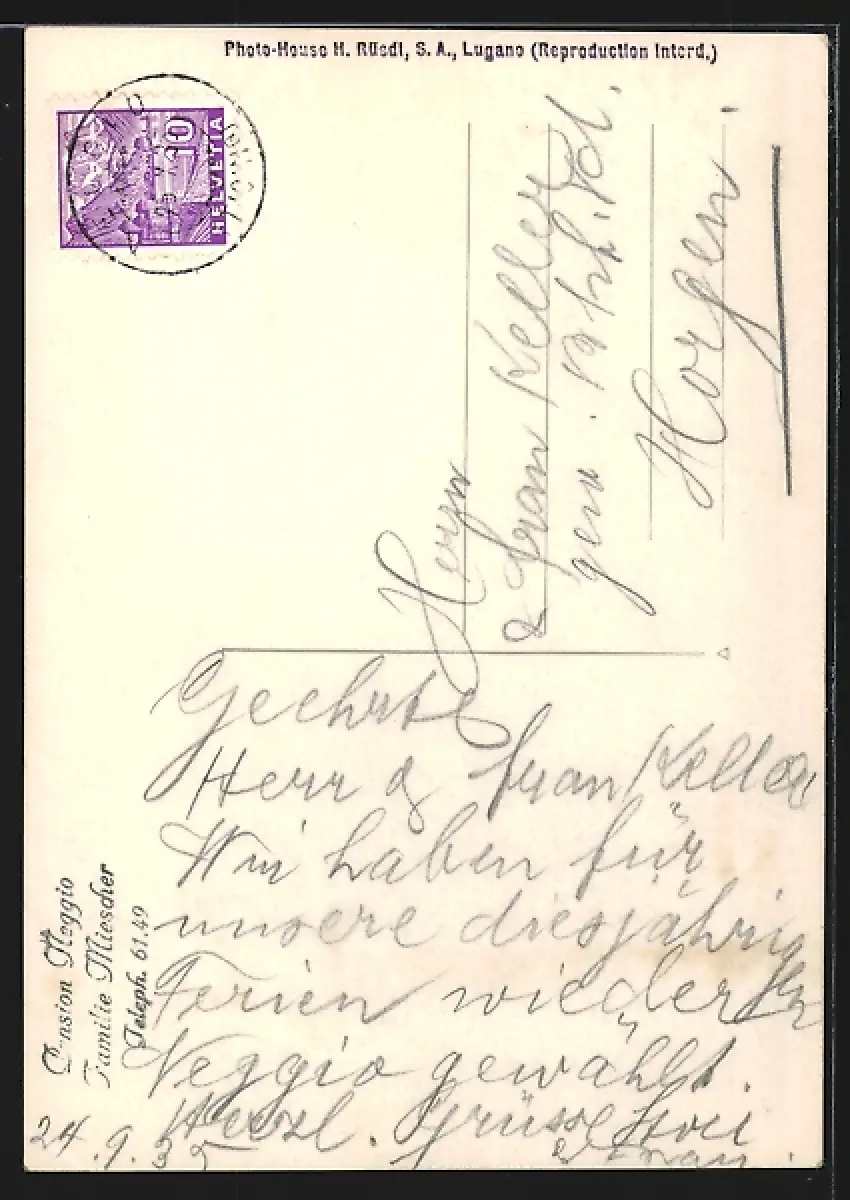 Photo-House H. Rüedi, S. A., Lugano (Reproduction interd.)
10
HELVETIA
Herrn
& Frau Keller
gew.
Horgen.
Geehrte
Herr & Frau Keller
Wir haben für
unsere diesjährig
Ferien wieder
Neggio gewählt.
Herzl. Grüsse
& Frau
24.9.35
Pension Neggio
Familie Miescher
Teleph. 61.49